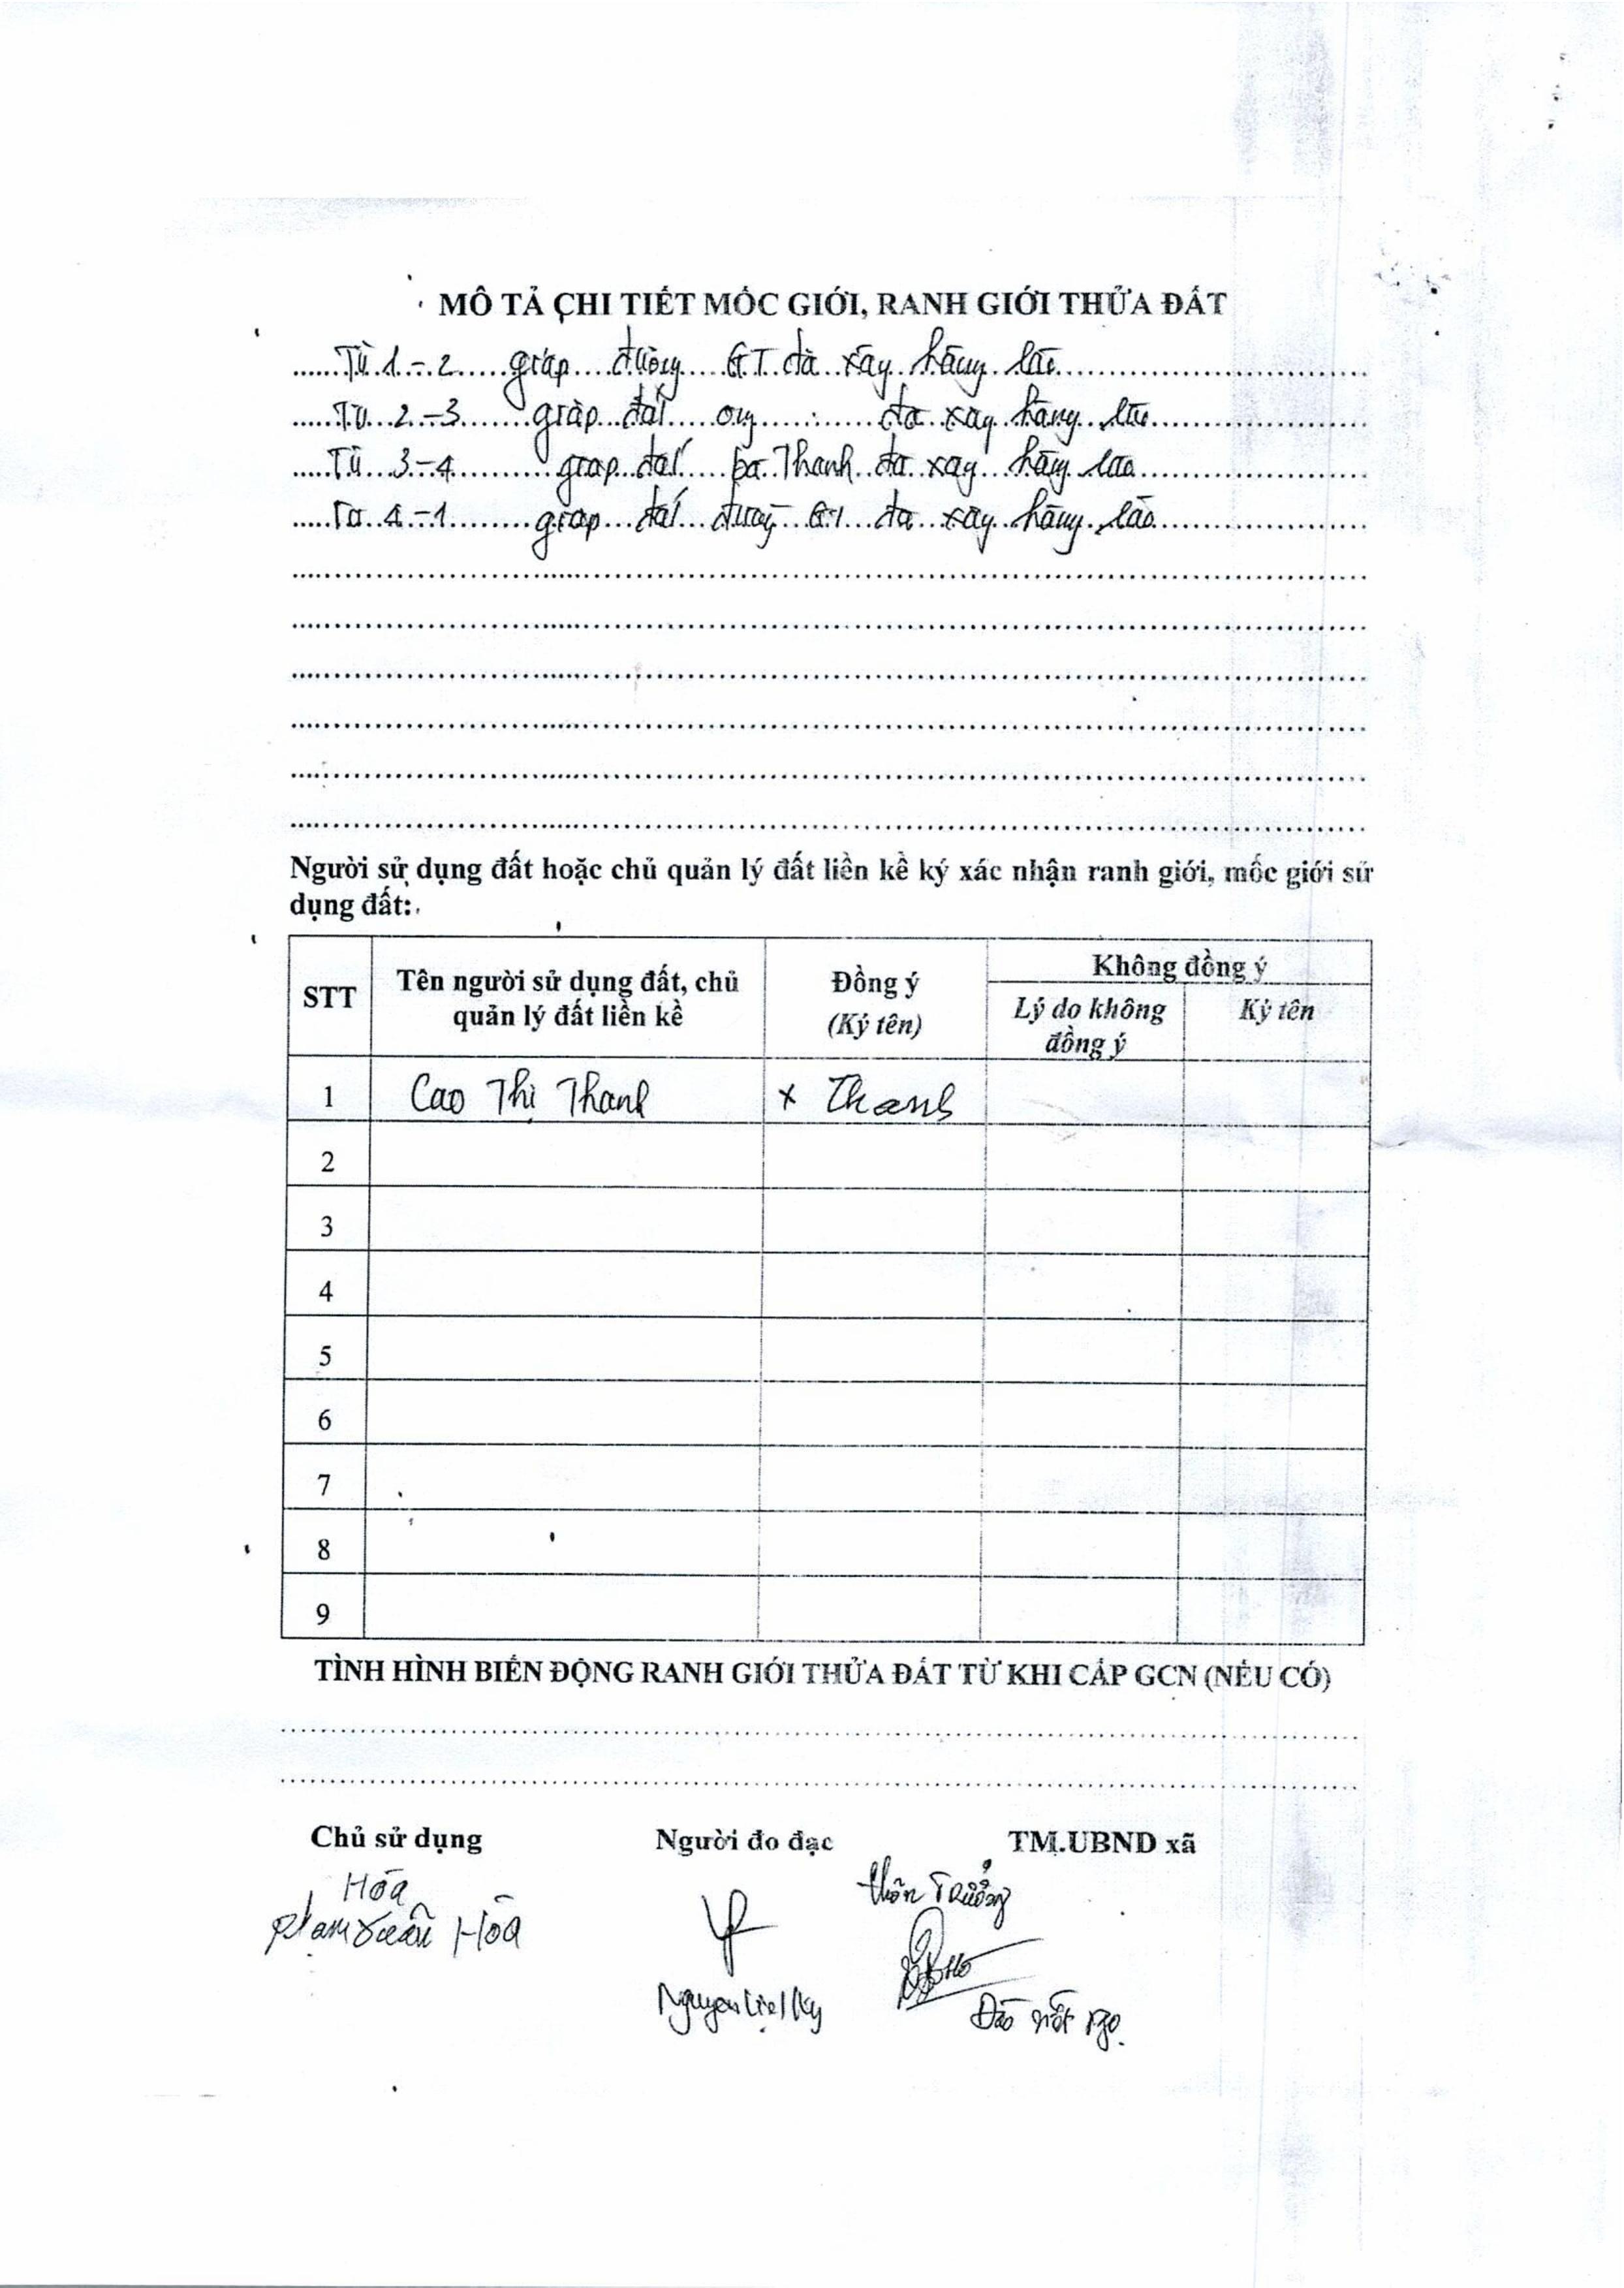 MÔ TẢ CHI TIẾT MỐC GIỚI, RANH GIỚI THỬA ĐẤT
Từ 1 - 2 giáp đường GT đã xây hàng rào
Từ 2 - 3 giáp đất ông đã xây hàng rào
Từ 3 - 4 giáp đất bà Thanh đã xây hàng rào
Từ 4 - 1 giáp đất đường GT đã xây hàng rào
Người sử dụng đất hoặc chủ quản lý đất liền kề ký xác nhận ranh giới, mốc giới sử
dụng đất:
STT Tên người sử dụng đất, chủ quản lý đất liền kề Đồng ý (Ký tên) Không đồng ý
Lý do không đồng ý Ký tên
1 Cao Thị Thanh x Thanh
2
3
4
5
6
7
8
9
TÌNH HÌNH BIẾN ĐỘNG RANH GIỚI THỬA ĐẤT TỪ KHI CẤP GCN (NẾU CÓ)
Chủ sử dụng Người đo đạc TM.UBND xã
Hóa thôn Trưởng
Phạm Xuân Hóa
Nguyễn Việt Kỳ Đào